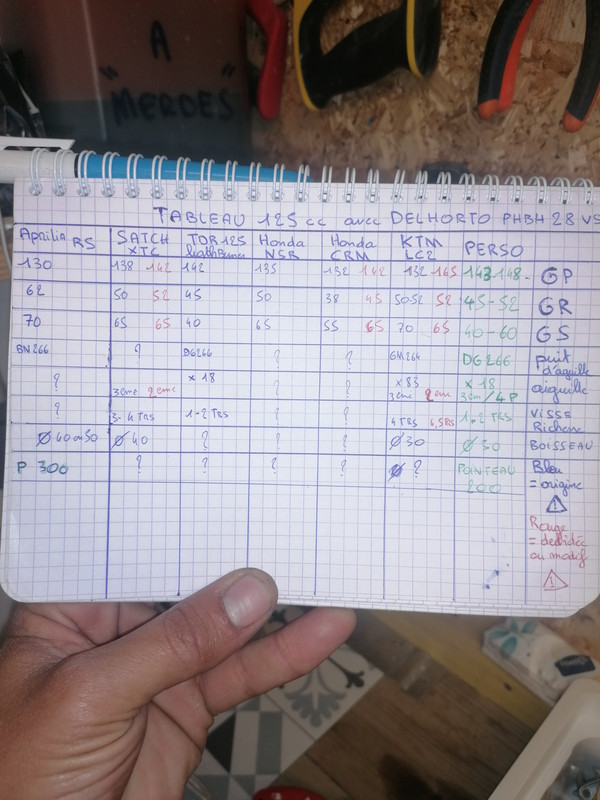 A
"MERDES"
TABLEAU 125 cc avec DELHORTO PHBH 28 VS
Aprilia RS SATCH XTC TDR 125 Honda NSR Honda CRM KTM LC2 PERSO
130 138 142 142 135 132 142 132 165 143 148 GP
62 50 52 45 50 38 45 50-52 52 45-52 GR
70 65 65 40 65 55 65 70 65 40-60 GS
BN266 ? DG266 ? ? DG266 puit d'aiguille
? 3eme 2eme x 18 x 83 3eme 2eme x 18 3em/4P aiguille
? 3-4 TRS 1-2 TRS 4 TRS 1,5TRS 1,2 TRS VISSE Richesse
Ø 40 ou 50 Ø 40 ? ? ? Ø 30 Ø 50 BOISSEAU
P 300 ? ? ? ? Ø ? POINTEAU 200 Bleu
= origine
Rouge
= débridée
ou modif